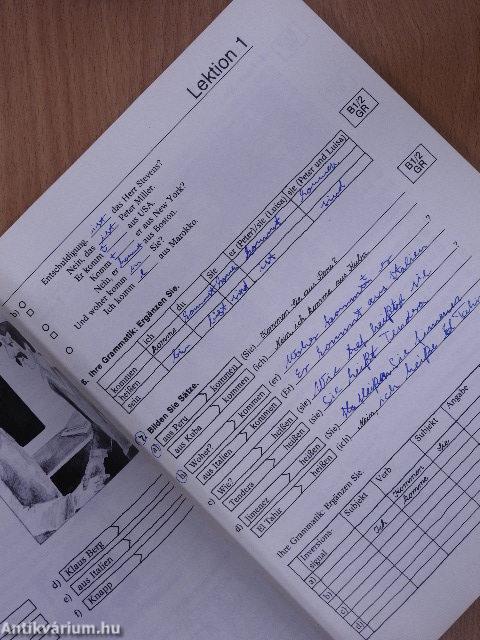 Lektion 1
B1/2
GR
b) Entschuldigung, ist das Herr Stevens?
Nein, das ist Peter Miller.
Er komm t aus USA.
Komm t er aus New York?
Nein, er kommt aus Boston.
Und woher komm en Sie?
Ich komm e aus Marokko.
B1/2
GR
6. Ihre Grammatik. Ergänzen Sie.
ich du Sie er (Peter)/sie (Luisa) sie (Peter und Luisa)
kommen komme kommst kommen kommt kommen
heißen
sein bin bist sind ist sind
7. Bilden Sie Sätze.
a) aus Peru kommen (Sie) Kommen Sie aus Peru?
aus Kuba kommen (ich) Nein, ich komme aus Kuba.
b) Woher? kommen (er) Woher kommt er ?
aus Italien kommen (Er) Er kommt aus Italien
c) Wie? heißen (sie) Wie heißt sie ?
Tendera heißen (sie) Sie heißt Tendera
d) Jimenez heißen (Sie) Heißen Sie Jimenez ?
El Tahir heißen (ich) Nein, ich heiße El Tahir
Ihre Grammatik. Ergänzen Sie.
Inversions-signal Subjekt Verb Subjekt Angabe
a) Kommen Sie
Ich komme
b)
c)
d)
d) Klaus Berg
e) aus Italien
f) Knapp
Antikvárium.hu